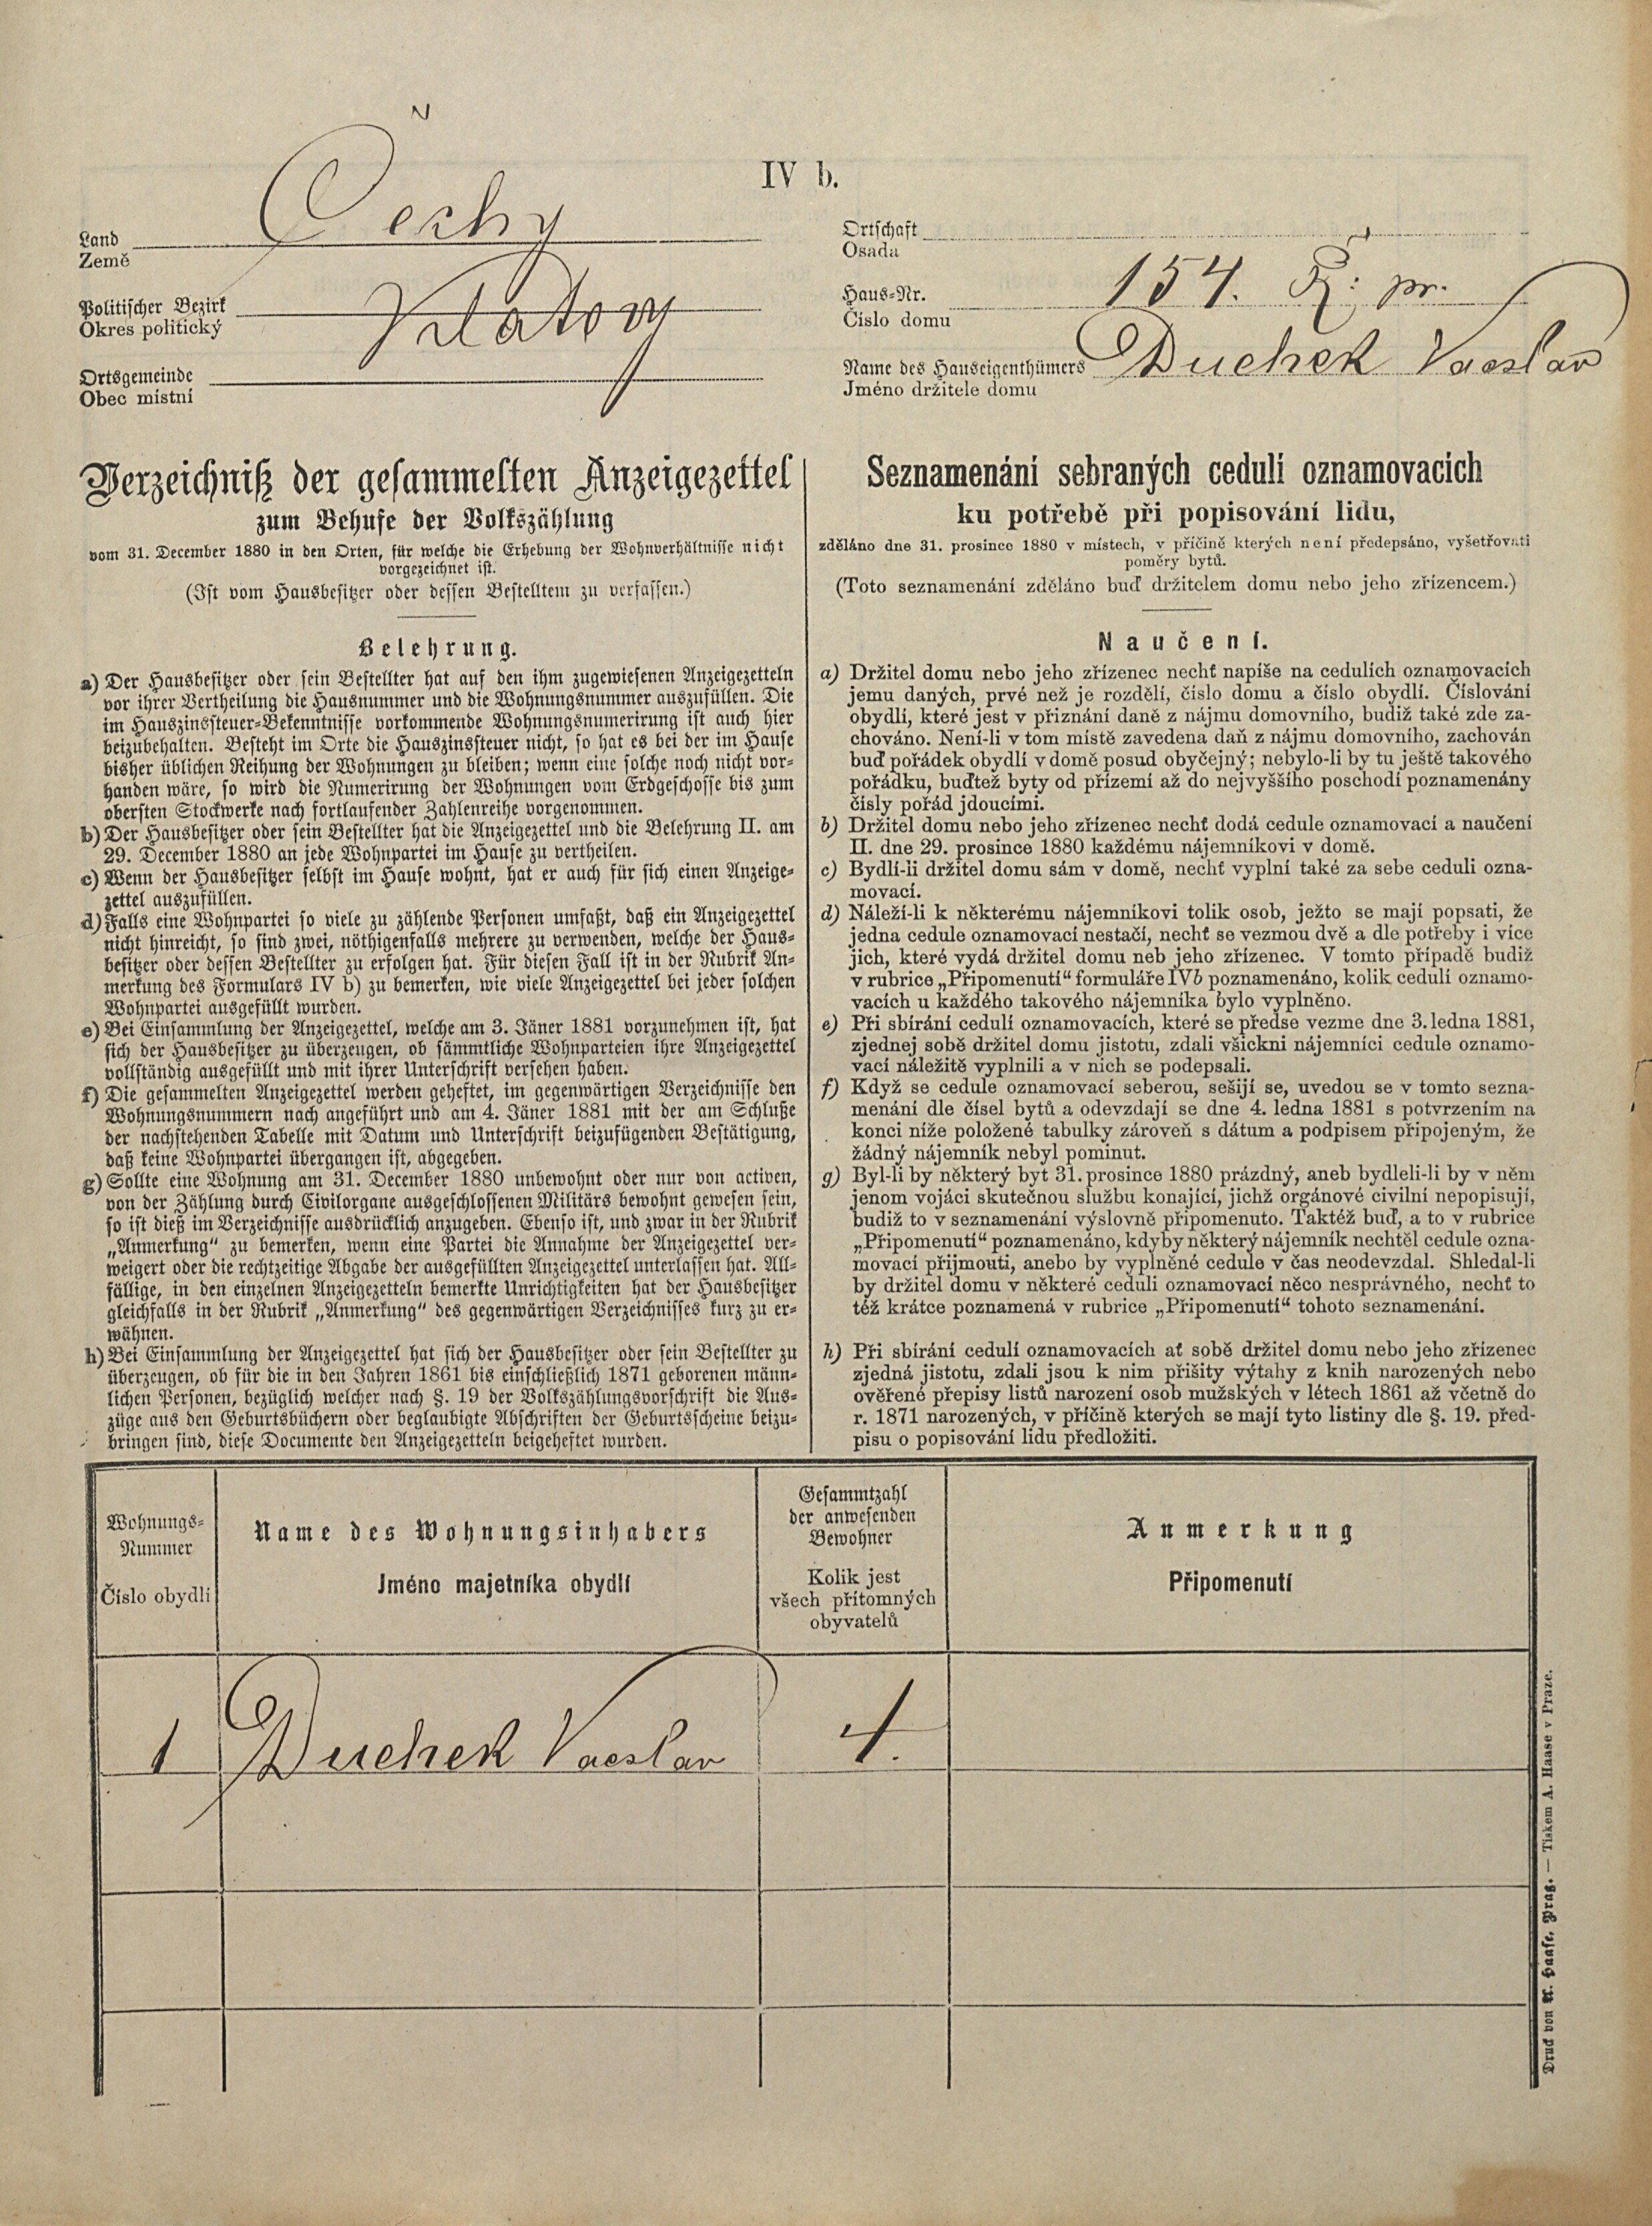 IV b.
Land Čechy
Země
Politischer Bezirk Klatovy
Okres politický
Ortsgemeinde
Obec místní
Ortschaft
Osada
Haus-Nr. 154. Ř: pr.
Číslo domu
Name des Hauseigenthümers Duchek Vacslav
Jméno držitele domu
Verzeichniß der gesammelten Anzeigezettel
zum Behufe der Volkszählung
vom 31. December 1880 in den Orten, für welche die Erhebung der Wohnverhältnisse nicht
vorgezeichnet ist.
(Ist vom Hausbesitzer oder dessen Bestelltem zu verfassen.)
Belehrung.
a) Der Hausbesitzer oder sein Bestellter hat auf den ihm zugewiesenen Anzeigezetteln
vor ihrer Vertheilung die Hausnummer und die Wohnungsnummer auszufüllen. Die
im Hauszinssteuer-Bekenntnisse vorkommende Wohnungsnumerirung ist auch hier
beizubehalten. Besteht im Orte die Hauszinssteuer nicht, so hat es bei der im Hause
bisher üblichen Reihung der Wohnungen zu bleiben; wenn eine solche noch nicht vor-
handen wäre, so wird die Numerirung der Wohnungen vom Erdgeschosse bis zum
obersten Stockwerke nach fortlaufender Zahlenreihe vorgenommen.
b) Der Hausbesitzer oder sein Bestellter hat die Anzeigezettel und die Belehrung II. am
29. December 1880 an jede Wohnpartei im Hause zu vertheilen.
c) Wenn der Hausbesitzer selbst im Hause wohnt, hat er auch für sich einen Anzeige-
zettel auszufüllen.
d) Falls eine Wohnpartei so viele zu zählende Personen umfaßt, daß ein Anzeigezettel
nicht hinreicht, so sind zwei, nöthigenfalls mehrere zu verwenden, welche der Haus-
besitzer oder dessen Bestellter zu erfolgen hat. Für diesen Fall ist in der Rubrik An-
merkung des Formulars IV b) zu bemerken, wie viele Anzeigezettel bei jeder solchen
Wohnpartei ausgefüllt wurden.
e) Bei Einsammlung der Anzeigezettel, welche am 3. Jäner 1881 vorzunehmen ist, hat
sich der Hausbesitzer zu überzeugen, ob sämmtliche Wohnparteien ihre Anzeigezettel
vollständig ausgefüllt und mit ihrer Unterschrift versehen haben.
f) Die gesammelten Anzeigezettel werden geheftet, im gegenwärtigen Verzeichnisse den
Wohnungsnummern nach angeführt und am 4. Jäner 1881 mit der am Schluße
der nachstehenden Tabelle mit Datum und Unterschrift beizufügenden Bestätigung,
daß keine Wohnpartei übergangen ist, abgegeben.
g) Sollte eine Wohnung am 31. December 1880 unbewohnt oder nur von activen,
von der Zählung durch Civilorgane ausgeschlossenen Militärs bewohnt gewesen sein,
so ist dieß im Verzeichnisse ausdrücklich anzugeben. Ebenso ist, und zwar in der Rubrik
„Anmerkung" zu bemerken, wenn eine Partei die Annahme der Anzeigezettel ver-
weigert oder die rechtzeitige Abgabe der ausgefüllten Anzeigezettel unterlassen hat. All-
fällige, in den einzelnen Anzeigezetteln bemerkte Unrichtigkeiten hat der Hausbesitzer
gleichfalls in der Rubrik „Anmerkung" des gegenwärtigen Verzeichnisses kurz zu er-
wähnen.
h) Bei Einsammlung der Anzeigezettel hat sich der Hausbesitzer oder sein Bestellter zu
überzeugen, ob für die in den Jahren 1861 bis einschließlich 1871 geborenen männ-
lichen Personen, bezüglich welcher nach §. 19 der Volkszählungsvorschrift die Aus-
züge aus den Geburtsbüchern oder beglaubigte Abschriften der Geburtsscheine beizu-
bringen sind, diese Documente den Anzeigezetteln beigeheftet wurden.
Seznamenání sebraných cedulí oznamovacích
ku potřebě při popisování lidu,
zděláno dne 31. prosince 1880 v místech, v příčině kterých není předepsáno, vyšetřovati
poměry bytů.
(Toto seznamenání zděláno buď držitelem domu nebo jeho zřízencem.)
Naučení.
a) Držitel domu nebo jeho zřízenec nechť napíše na cedulích oznamovacích
jemu daných, prvé než je rozdělí, číslo domu a číslo obydlí. Číslování
obydlí, které jest v přiznání daně z nájmu domovního, budiž také zde za-
chováno. Není-li v tom místě zavedena daň z nájmu domovního, zachován
buď pořádek obydlí v domě posud obyčejný; nebylo-li by tu ještě takového
pořádku, buďtež byty od přízemí až do nejvyššího poschodí poznamenány
čísly pořád jdoucími.
b) Držitel domu nebo jeho zřízenec nechť dodá cedule oznamovací a naučení
II. dne 29. prosince 1880 každému nájemníkovi v domě.
c) Bydlí-li držitel domu sám v domě, nechť vyplní také za sebe ceduli ozna-
movací.
d) Náleží-li k některému nájemníkovi tolik osob, ježto se mají popsati, že
jedna cedule oznamovací nestačí, nechť se vezmou dvě a dle potřeby i více
jich, které vydá držitel domu neb jeho zřízenec. V tomto případě budiž
v rubrice „Připomenutí" formuláře IVb poznamenáno, kolik cedulí oznamo-
vacích u každého takového nájemníka bylo vyplněno.
e) Při sbírání cedulí oznamovacích, které se předse vezme dne 3. ledna 1881,
zjednej sobě držitel domu jistotu, zdali všickni nájemníci cedule oznamo-
vací náležitě vyplnili a v nich se podepsali.
f) Když se cedule oznamovací seberou, sešijí se, uvedou se v tomto sezna-
menání dle čísel bytů a odevzdají se dne 4. ledna 1881 s potvrzením na
konci níže položené tabulky zároveň s dátum a podpisem připojeným, že
žádný nájemník nebyl pominut.
g) Byl-li by některý byt 31. prosince 1880 prázdný, aneb bydleli-li by v něm
jenom vojáci skutečnou službu konající, jichž orgánové civilní nepopisují,
budiž to v seznamenání výslovně připomenuto. Taktéž buď, a to v rubrice
„Připomenutí" poznamenáno, kdyby některý nájemník nechtěl cedule ozna-
movací přijmouti, anebo by vyplněné cedule v čas neodevzdal. Shledal-li
by držitel domu v některé ceduli oznamovací něco nesprávného, nechť to
též krátce poznamená v rubrice „Připomenutí" tohoto seznamenání.
h) Při sbírání cedulí oznamovacích ať sobě držitel domu nebo jeho zřízenec
zjedná jistotu, zdali jsou k nim přišity výtahy z knih narozených nebo
ověřené přepisy listů narození osob mužských v létech 1861 až včetně do
r. 1871 narozených, v příčině kterých se mají tyto listiny dle §. 19. před-
pisu o popisování lidu předložiti.
Wohnungs-
Nummer
Číslo obydlí
Name des Wohnungsinhabers
Jméno majetníka obydlí
Gesammtzahl
der anwesenden
Bewohner
Kolik jest
všech přítomných
obyvatelů
Anmerkung
Připomenutí
1 Duchek Vacslav 4.
Druck von A. Haase, Prag. — Tiskem A. Haase v Praze.